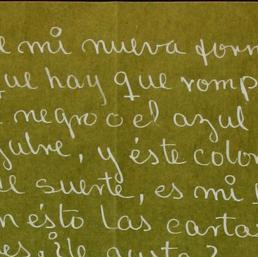 e mi nueva form
que hay que romp
negro o el azul
gubre, y éste color
de suerte, es mi
n ésto las cartas
es. ¿Te gusta?